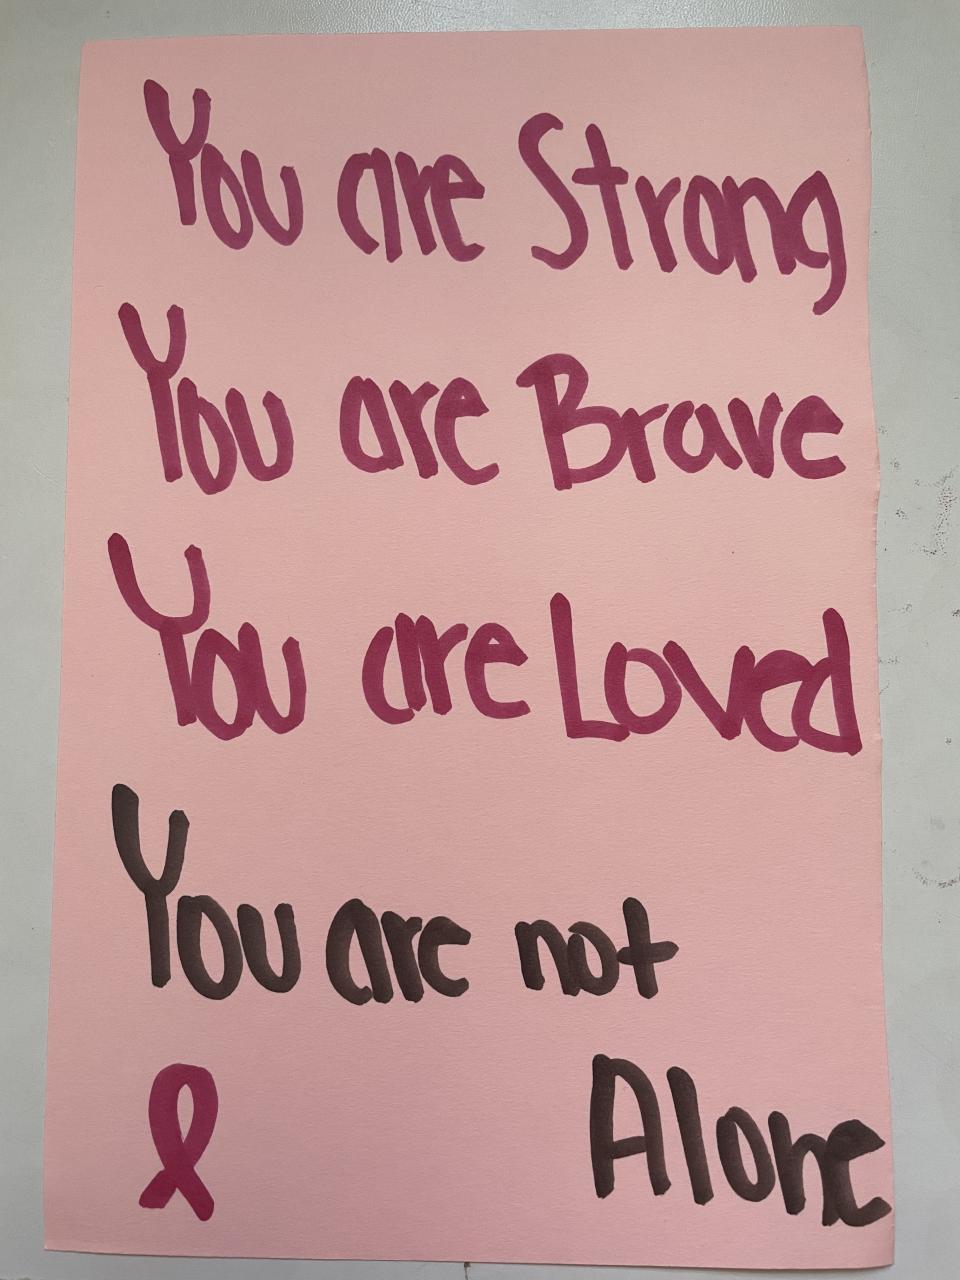 You are Strong
You are Brave
You are Loved
You are not
Alone